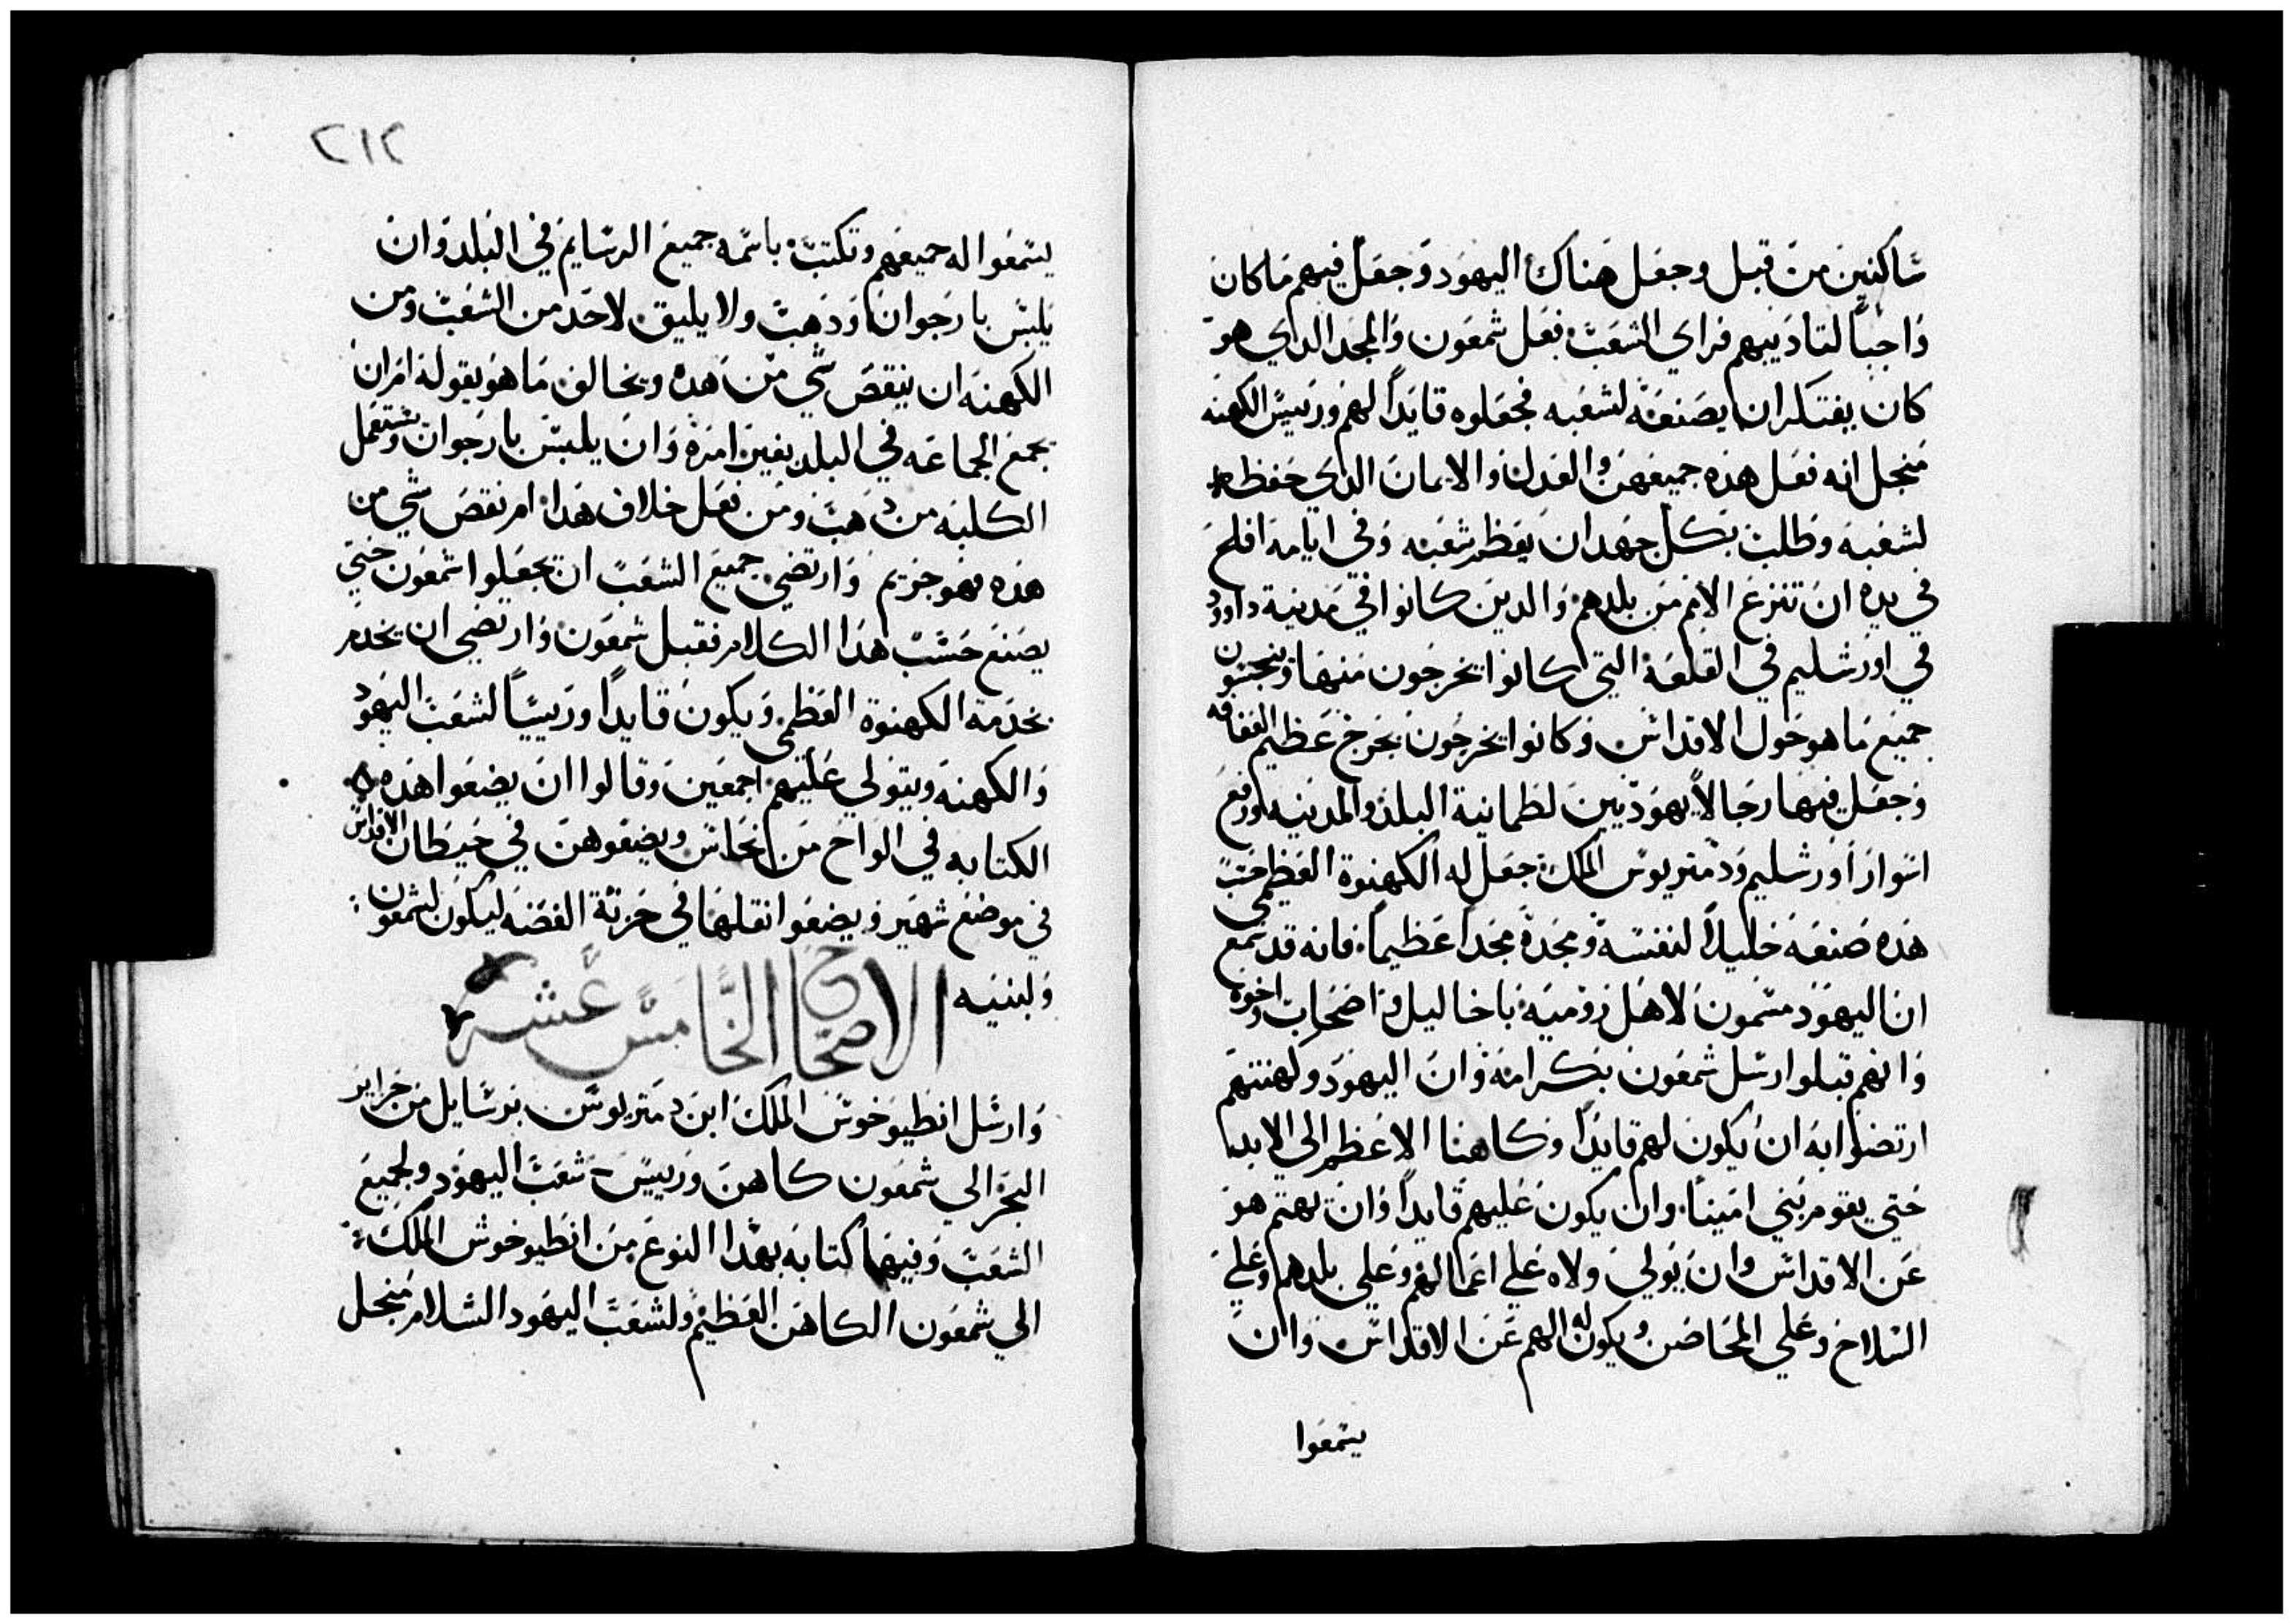 ساكنين من قبل وجعل هناك اليهود وجعل فيهم ما كان
واجباً لتاديبهم فراي الشعب فعل شمعون والمجد الذي هو
كان يفتكر ان يصنعه لشعبه فجعلوه قايداً لهم ورييس الكهنه
منجل انه فعل هذه جميعهن والعدل والايمان الذي حفظه
لشعبه وطلب بكل جهد ان يعظم شعبه وفي ايامه افلح
في يده ان تنزع الامم من بلدهم والذين كانوا في مدينة داوود
في اورشليم في القلعة التي كانوا يخرجون منها وينجسون
جميع ما هو حول الاقداس وكانوا يخرجون بجرح عظيم العفافه
وجعل فيها رجالاً يهوديين لطمانية البلد والمدينه ورفع
اسوار اورشليم ودمتريوس الملك جعل له الكهنوة العظمي حسب
هذه صنعه خليلاً لنفسه ومجده مجداً عظيماً فانه قد سمع
ان اليهود مسمون لاهل روميه باخا ليل واضحاب واخوه
وانهم قبلوا رسل شمعون بكرامه وان اليهود وكهنتهم
ارتضوا به ان يكون لهم قايداً وكاهنا الاعظم الي الابد
حتي يقوم نبي امينا وان يكون عليهم قايداً وان يهتم هو
عن الاقداس وان يولي ولاه علي اعمالهم وعلي بلدهم وعلي
السلاح وعلي المحاضن ويكون له الهم عن الاقداس وان
يسمعوا
٢١٢
يسمعوا له جميعهم وتكتب باسمه جميع الرسايم في البلد وان
يلبس بارجوان وذهب ولا يليق لاحد من الشعب ومن
الكهنه ان ينقص شي من هذه ويخالف ما هو يقوله امر ان
يجمع الجماعه في البلد بغير امره وان يلبس بارجوان ويستعمل
الكلبه من ذهب ومن فعل خلاف هذا ام نقص شي من
هذه فهو جزيم وارتضي جميع الشعب ان يجعلوا شمعون حتي
يصنع حسب هذا الكلام فقبل شمعون وارتضي ان يخدم
بخدمة الكهنوة العظمي ويكون قايداً ورييساً لشعب اليهود
والكهنه ويتولي عليهم اجمعين وقالوا ان يضعوا هذه
الكتابه في الواح من نحاس ويضعوهن في حيطان الاقداس
في موضع شهير ويضعوا نقلها في خزنة الفضه ليكون لشمعون
ولبنيه الاصحاح الخامس عشر
وارسل انطيوخوس الملك ابن دمتريوس برسايل من جزاير
البحر الي شمعون كاهن ورييس شعب اليهود ولجميع
الشعب وفيها كتابه بهذا النوع من انطيوخوس الملك
الي شمعون الكاهن العظيم ولشعب اليهود السلام منجل